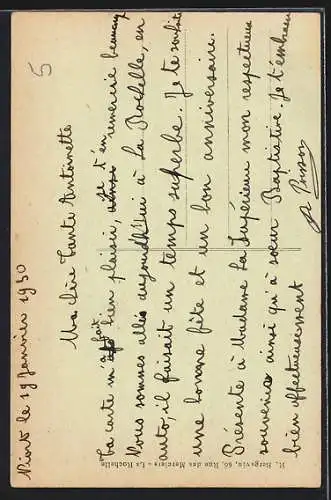 5
Niort le 19 Janvier 1930
Ma chère tante Antoinette
Ta carte m'a fait bien plaisir, je t'en remercie beaucoup
Nous sommes allés aujourd'hui à La Rochelle, en
auto, il faisait un temps superbe. Je te souhaite
une bonne fête et un bon anniversaire.
Présente à Madame La Supérieure mon respectueux
souvenir ainsi qu'à sœur Baptistine. Je t'embrasse
bien affectueusement
R. Bergevin, 66, Rue des Merciers - La Rochelle